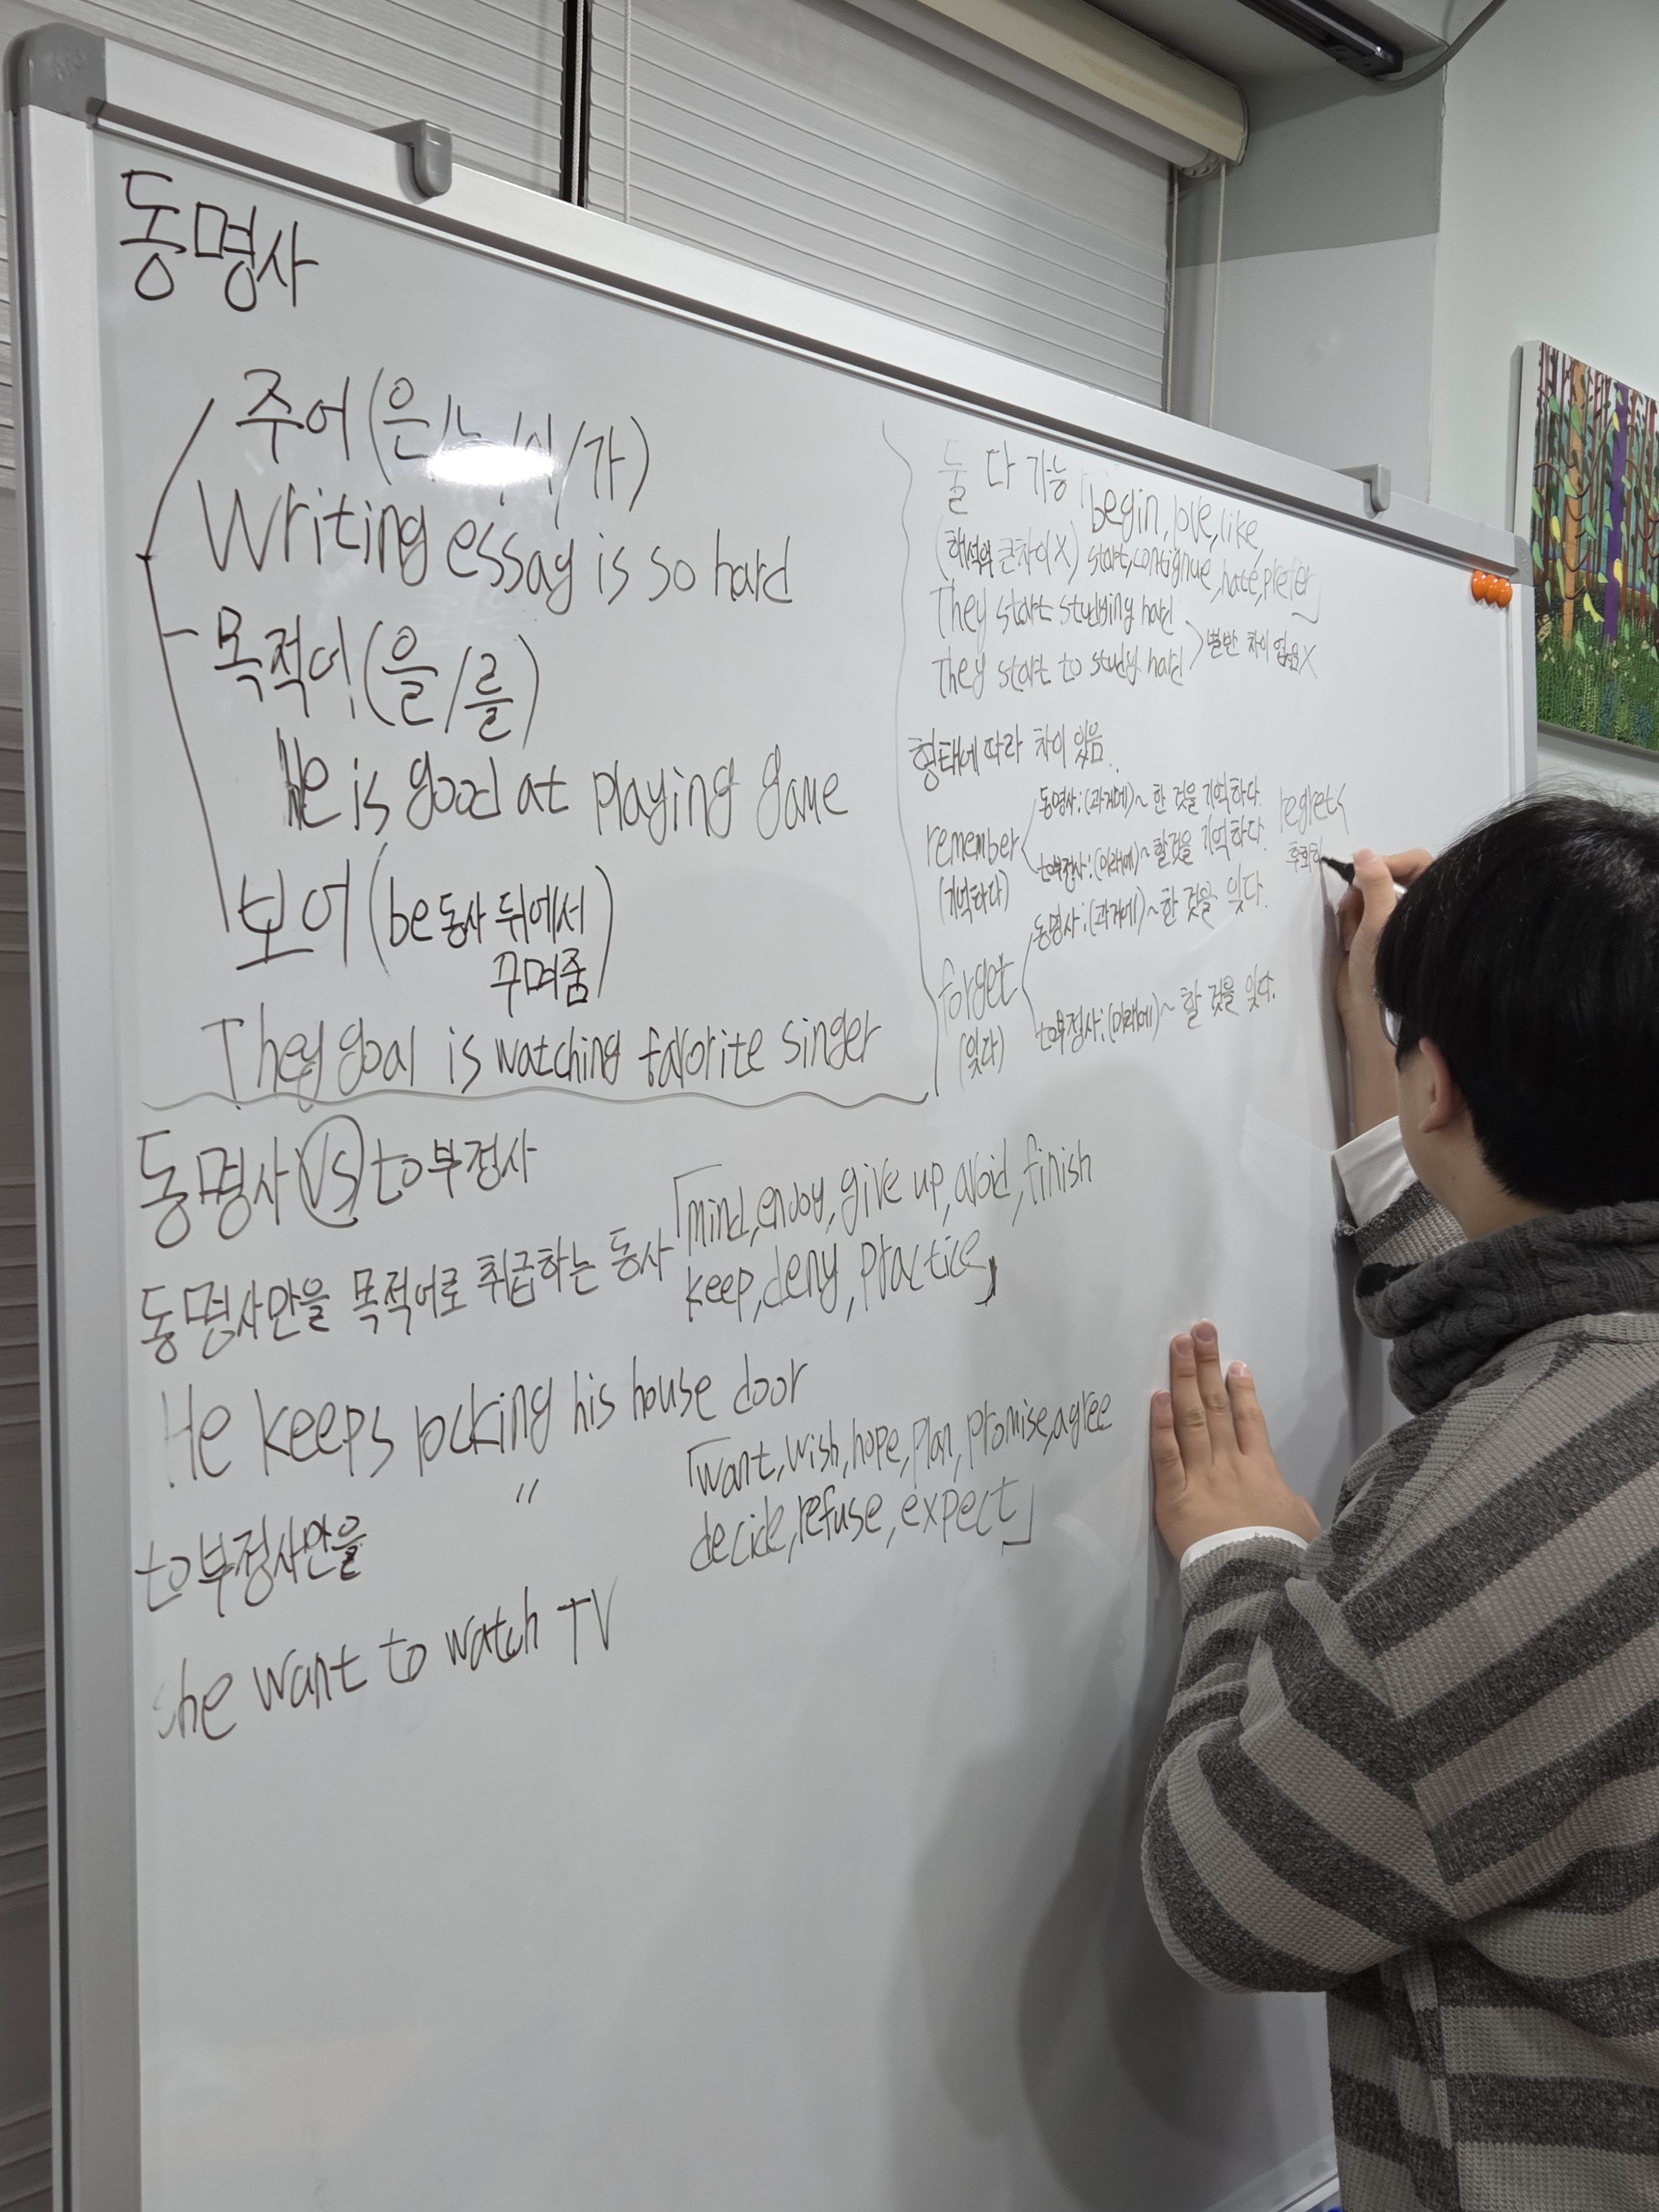 동명사
주어(은/는/이/가)
Writing essay is so hard
목적어(을/를)
He is good at playing game
보어(be동사 뒤에서
꾸며줌)
They goal is watching favorite singer
동명사 vs to부정사
동명사만을 목적어로 취급하는 동사 「mind, enjoy, give up, avoid, finish
keep, deny, practice」
He keeps locking his house door
to부정사만을 〃 「want, wish, hope, plan, promise, agree
decide, refuse, expect」
she want to watch TV
둘 다 가능 「begin, love, like,
(해석의 큰차이X) start, contignue, hate, prefer」
They start studying hard
They start to study hard > 별반 차이 X
형태에 따라 차이 있음.
remember < 동명사:(과거에)~ 한 것을 기억하다.
(기억하다) to부정사:(미래에)~ 할것을 기억하다.
forget < 동명사:(과거에)~ 한 것을 잊다.
(잊다) to부정사:(미래에)~ 할 것을 잊다.
regret <
후회하